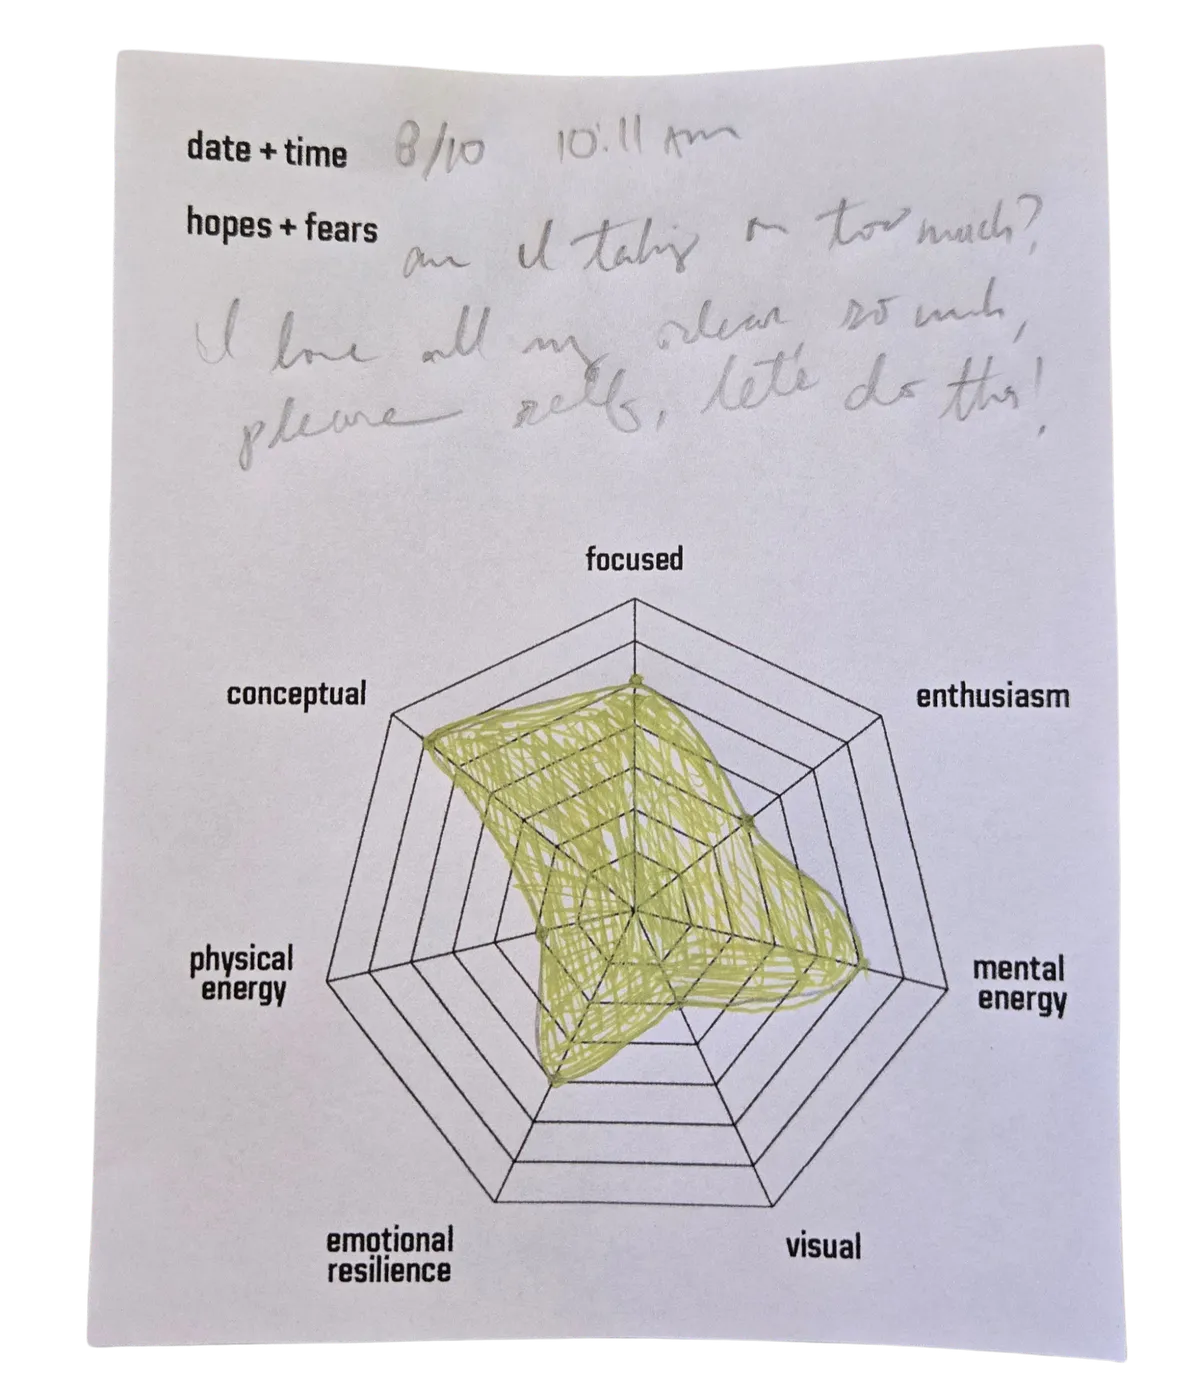 date + time 8/10 10:11 Am
hopes + fears am I taking on too much?
I love all my ideas so much,
please self, let's do this!
focused
conceptual
enthusiasm
physical
energy
mental
energy
emotional
resilience
visual